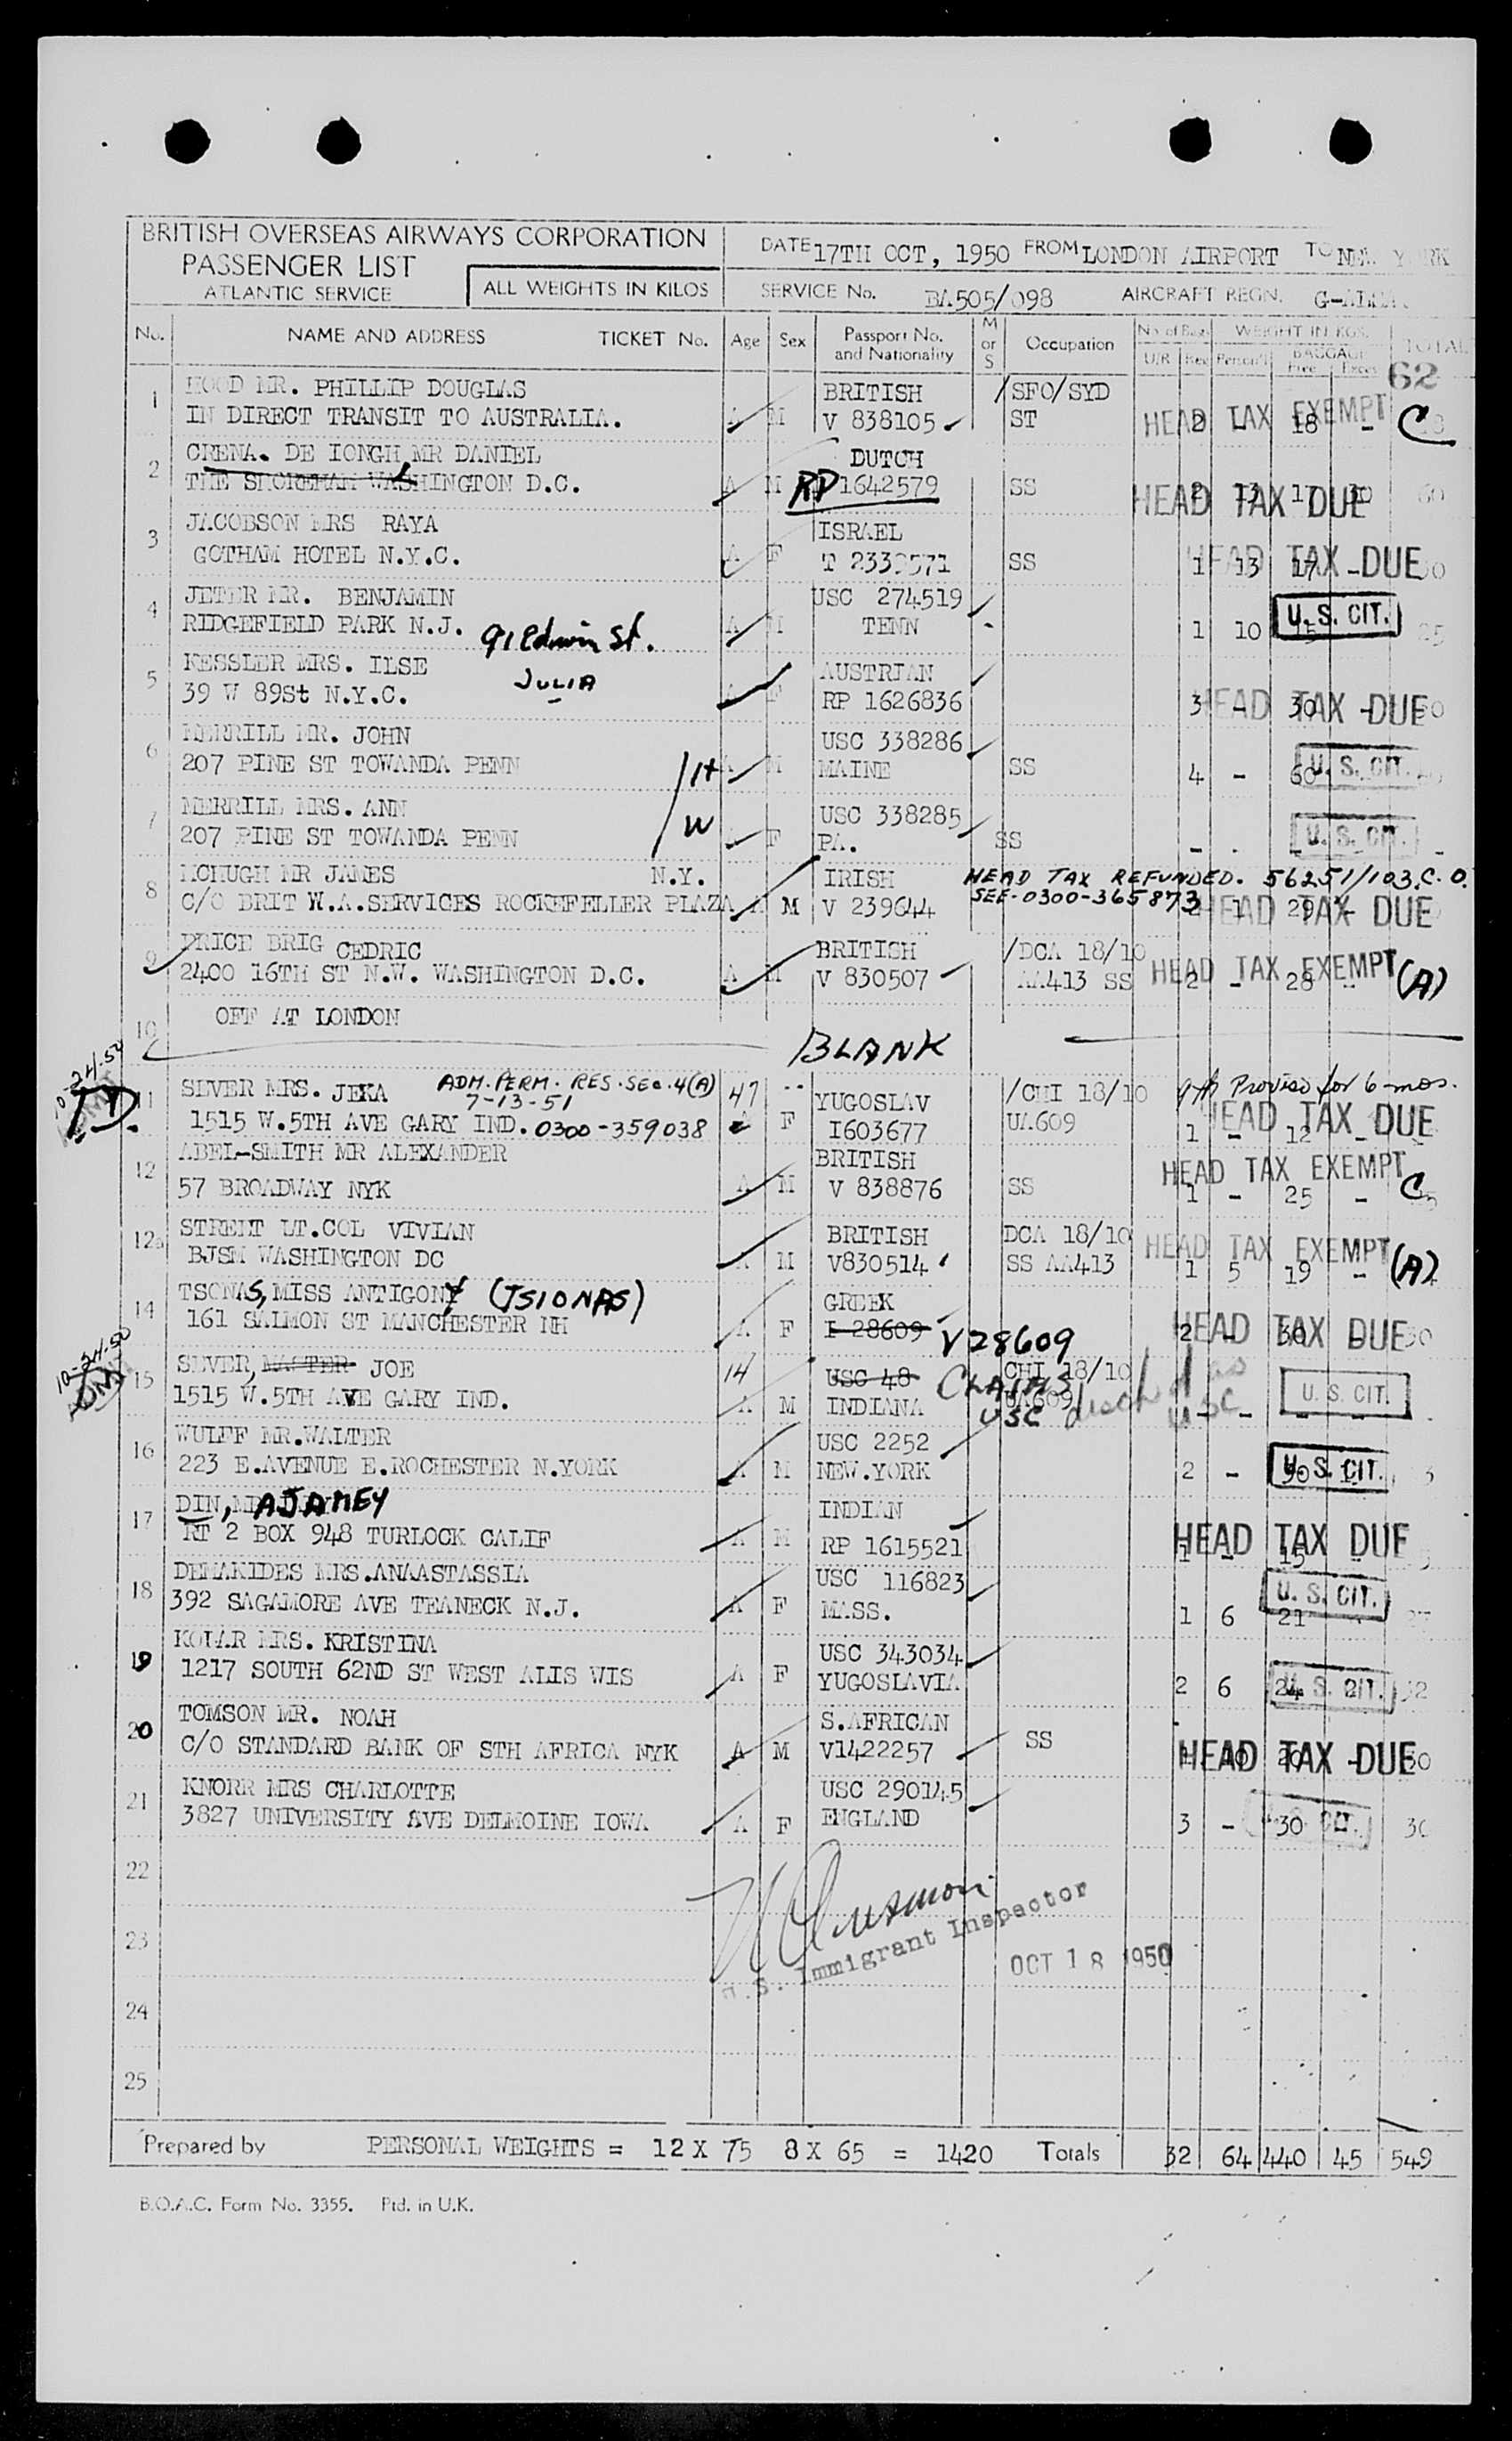 BRITISH OVERSEAS AIRWAYS CORPORATION
PASSENGER LIST
ATLANTIC SERVICE
ALL WEIGHTS IN KILOS
DATE 17TH OCT, 1950 FROM LONDON AIRPORT TO NEW YORK
SERVICE No. BA505/098 AIRCRAFT REGN.
No. NAME AND ADDRESS TICKET No. Age Sex Passport No. and Nationality M or S Occupation No. of Bags WEIGHT IN KGS. TOTAL
U/R Rec Person'l BAGGAGE Free Exces
62
1 HOOD MR. PHILLIP DOUGLAS BRITISH /SFO/SYD
IN DIRECT TRANSIT TO AUSTRALIA. A M V 838105 ST HEAD TAX EXEMPT 2 - 18 - C
2 CRENA. DE IONGH MR DANIEL DUTCH
THE SHOREHAM WASHINGTON D.C. A M RP 1642579 SS HEAD TAX DUE 2 13 17 30 60
3 JACOBSON MRS RAYA ISRAEL
GOTHAM HOTEL N.Y.C. A F SS HEAD TAX DUE 1 13 17 - 30
4 JETER MR. BENJAMIN USC 274519
RIDGEFIELD PARK N.J. 91 Edwin St. A M TENN 1 10 15 U.S. CIT. 25
5 KESSLER MRS. ILSE JULIA AUSTRIAN
39 W 89St N.Y.C. A F RP 1626836 3 HEAD TAX DUE 30 -
6 MERRILL MR. JOHN USC 338286
207 PINE ST TOWANDA PENN /H A M MAINE SS 4 - 60 U.S. CIT.
7 MERRILL MRS. ANN USC 338285
207 PINE ST TOWANDA PENN /W A F PA. SS - - U.S. CIT. -
8 MCHUGH MR JAMES N.Y. IRISH HEAD TAX REFUNDED. 56251/103.C.O.
C/O BRIT W.A.SERVICES ROCKEFELLER PLAZA A M V 239644 SEE-0300-365873 HEAD TAX DUE
9 PRICE BRIG CEDRIC BRITISH /DCA 18/10
2400 16TH ST N.W. WASHINGTON D.C. A M V 830507 AA413 SS HEAD TAX EXEMPT 2 - 28 - (A)
10 OFF AT LONDON
BLANK
10-24-50
11 SEVER MRS. JEKA ADM. PERM. RES. SEC. 4(A) 47 YUGOSLAV /CHI 18/10 9th Proviso for 6 mos.
7-13-51
1515 W.5TH AVE GARY IND. 0300-359038 F I603677 UA609 HEAD TAX DUE 1 - 12 -
12 ABEL-SMITH MR ALEXANDER BRITISH
57 BROADWAY NYK A M V 838876 SS HEAD TAX EXEMPT 1 - 25 - C
12a LT.COL VIVIAN BRITISH DCA 18/10
BJSM WASHINGTON DC A M V830514 SS AA413 HEAD TAX EXEMPT 1 5 19 - (A)
14 TSONAS, MISS ANTIGONY (TSIONAS) GREEK
161 SALMON ST MANCHESTER NH A F I 28609 V28609 HEAD TAX DUE 2 - 30 - 30
10-24-50
15 SEVER, MASTER JOE 14 USC 48 CLAIMS USC CHI 18/10
1515 W.5TH AVE GARY IND. A M INDIANA UA609 as USC U.S. CIT.
16 WULFF MR.WALTER USC 2252
223 E.AVENUE E.ROCHESTER N.YORK A M NEW.YORK 2 - U.S. CIT.
17 DIN, AJAMEY INDIAN
RT 2 BOX 948 TURLOCK CALIF A M RP 1615521 HEAD TAX DUE 1 - 15 -
18 DEMAKIDES MRS.ANAASTASSIA USC 116823
392 SAGAMORE AVE TEANECK N.J. A F MASS. 1 6 21 U.S. CIT. 27
19 MRS. KRISTINA USC 343034
1217 SOUTH 62ND ST WEST ALIS WIS A F YUGOSLAVIA 2 6 24 2 U.S. CIT. 32
20 TOMSON MR. NOAH S.AFRICAN
C/O STANDARD BANK OF STH AFRICA NYK A M V1422257 SS HEAD TAX DUE 10 20 - 30
21 KNORR MRS CHARLOTTE USC 290145
3827 UNIVERSITY AVE DELMOINE IOWA A F ENGLAND 3 - 30 - U.S. CIT. 30
22
23
U.S. Immigrant Inspector
OCT 18 1950
24
25
Prepared by PERSONAL WEIGHTS = 12 X 75 8 X 65 = 1420 Totals 32 64 440 45 549
B.O.A.C. Form No. 3355. Ptd. in U.K.